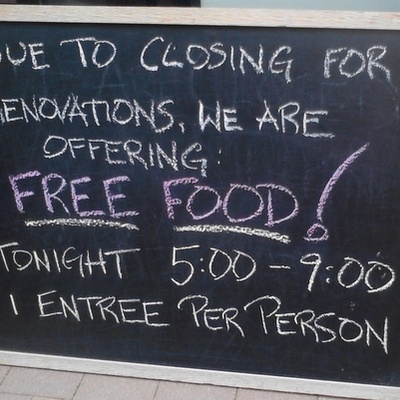 DUE TO CLOSING FOR
RENOVATIONS, WE ARE
OFFERING:
FREE FOOD!
TONIGHT 5:00 - 9:00
1 ENTREE PER PERSON